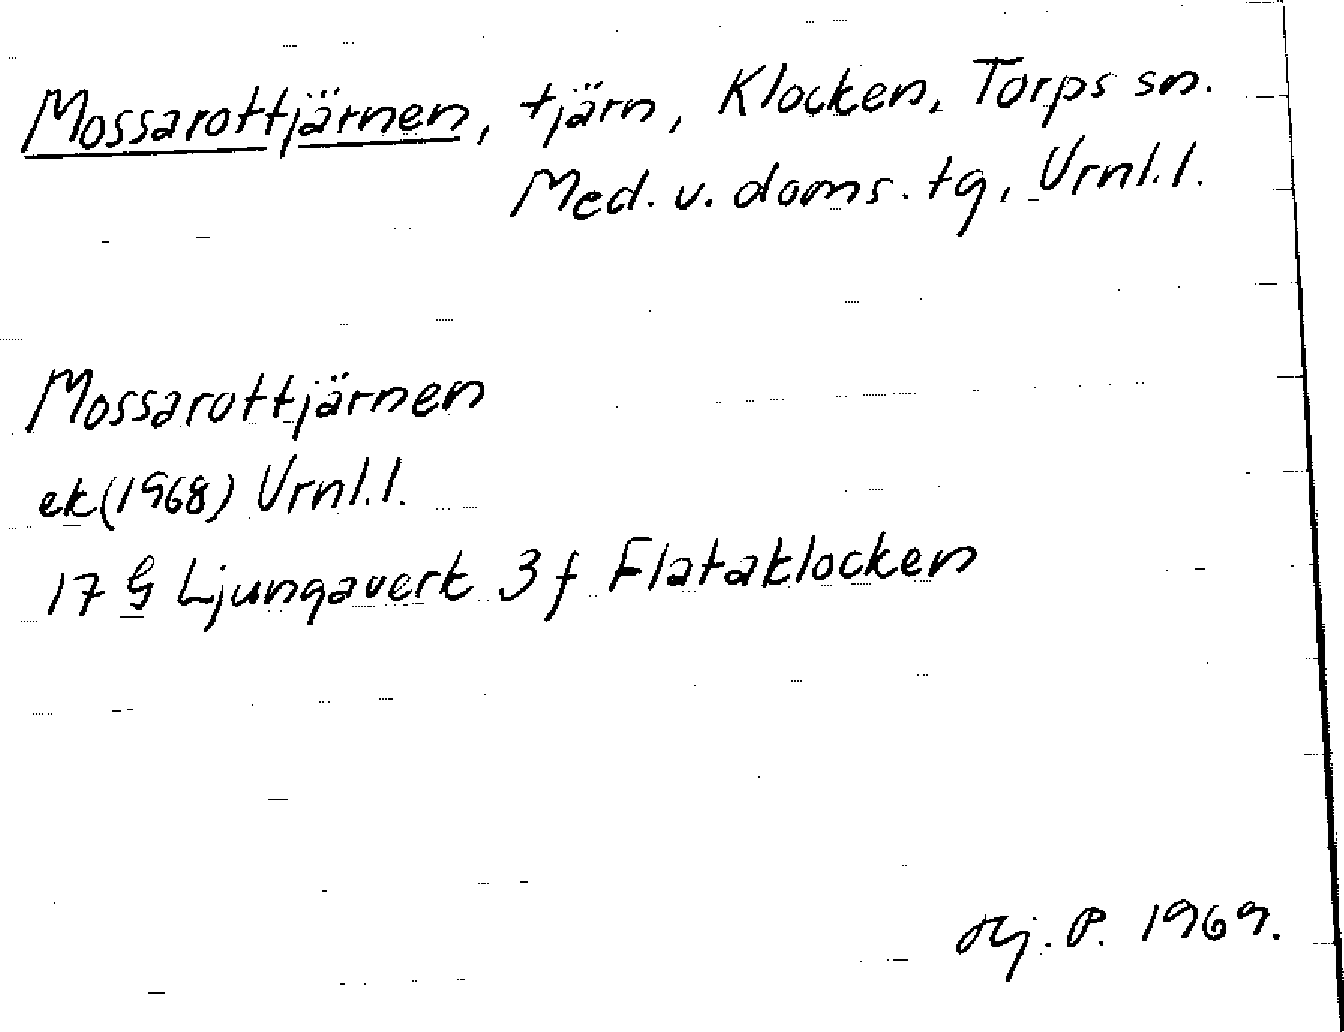 Mossarottjärnen, tjärn, Klocken, Torps sn.
Med. v. doms. tg, Vrnl.l.
Mossarottjärnen
ek (1968) Vrnl.l.
17 G Ljungaverk 3 f Flataklocken
Hj. P. 1969.